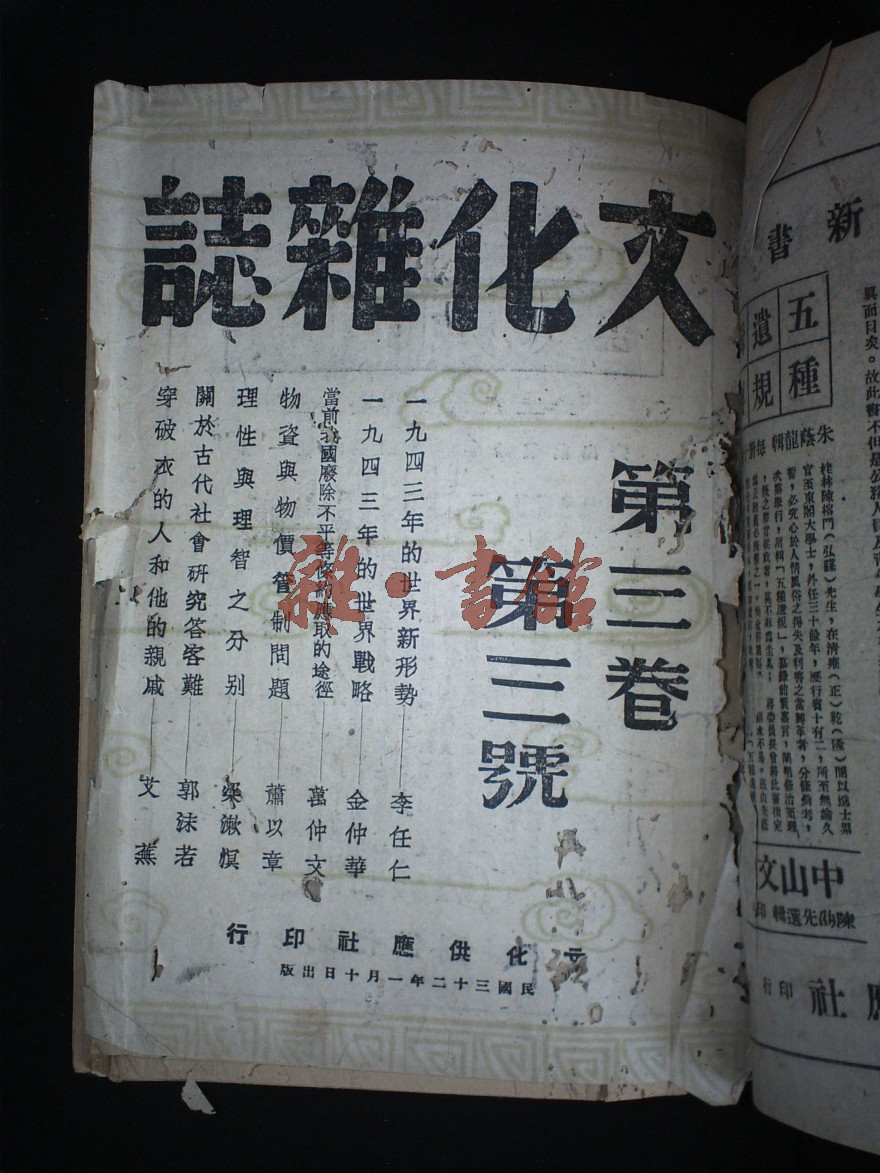 文化雜誌
第三卷
第三號
一九四三年的世界新形勢——李任仁
一九四三年的世界戰略——金仲華
當前我國廢除不平等條約應取的途徑——萬仲文
物資與物價管制問題——蕭以章
理性與理智之分別——梁漱溟
關於古代社會研究答客難——郭沫若
穿破衣的人和他的親戚——艾蕪
文化供應社印行
民國三十二年一月十日出版
雜·書館
新書
五種遺規
朱蔭龍輯
桂林陳榕門(弘謀)先生,在清雍(正)乾(隆)間以進士累
官至東閣大學士,外任三十餘年,歷行省十有二,所至無論久
暫,必究心於人情風俗之得失及利害之當興革者,分條鈎考,
真而目矣。故此書不但是公務人員
中山文
陳劭先選輯
應社印行